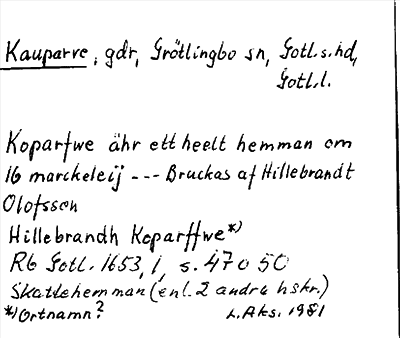 Kauparve, gdr, Grötlingbo sn, Gotl.s.hd,
Gotl.l.
Koparfwe ähr ett heelt hemman om
16 marckeleij --- Bruckas af Hillebrandt
Olofsson
Hillebrandh Koparffwe*)
R6 Gotl. 1653, 1, s. 47 o 50
Skattehemman (enl. 2 andra hskr.)
*) Ortnamn? L. Aks. 1981